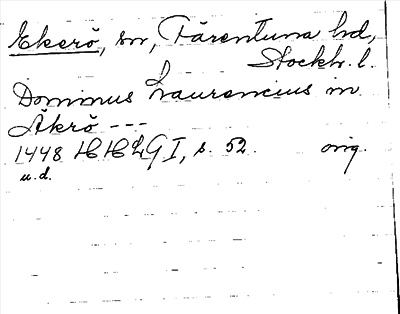 Ekerö, sn, Färentuna hd,
Stockh. l.
Dominus Laurencius in
Åkrö ---
1448 HH I, s. 52. orig.
u.d.